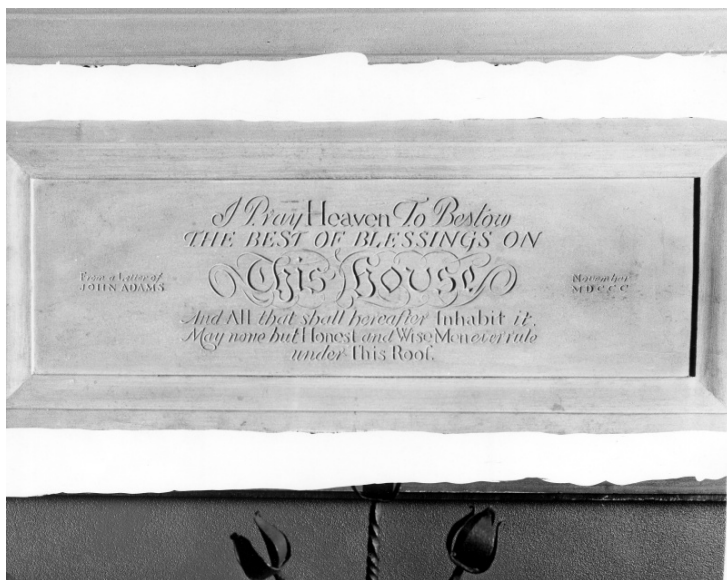 I Pray Heaven To Bestow
THE BEST OF BLESSINGS ON
This House
And All that shall hereafter Inhabit it.
May none but Honest and Wise Men ever rule
under This Roof.
From a Letter of
JOHN ADAMS
November
MDCCC